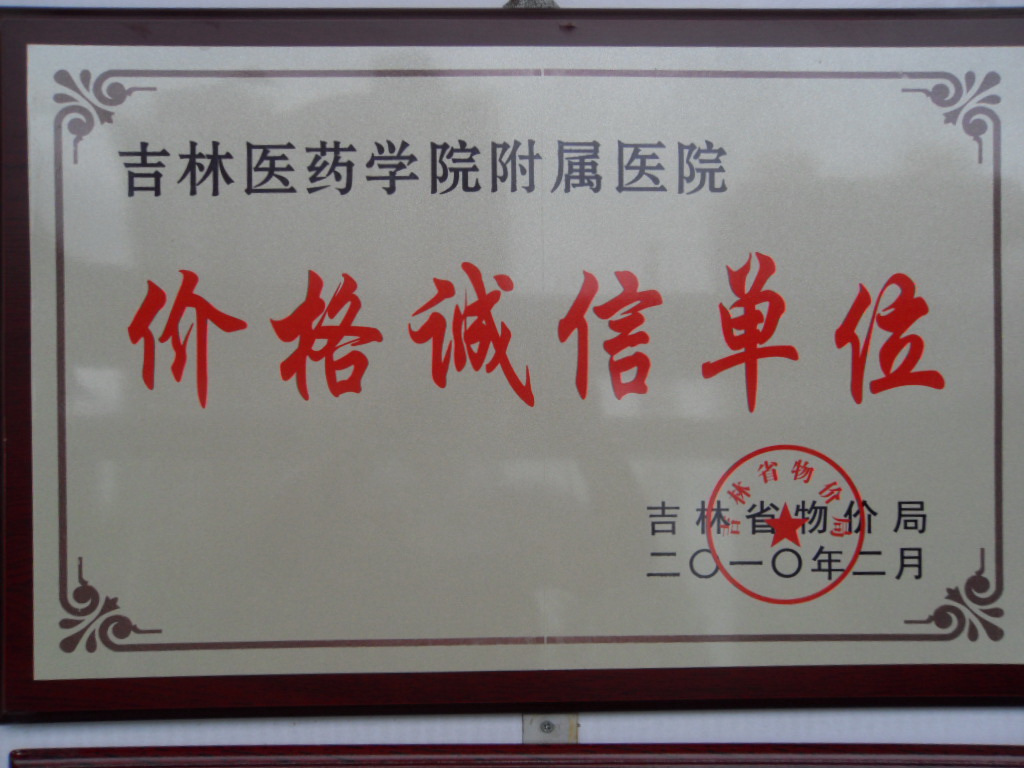 吉林医药学院附属医院
价格诚信单位
吉林省物价局
吉林省物价局
二〇一〇年二月